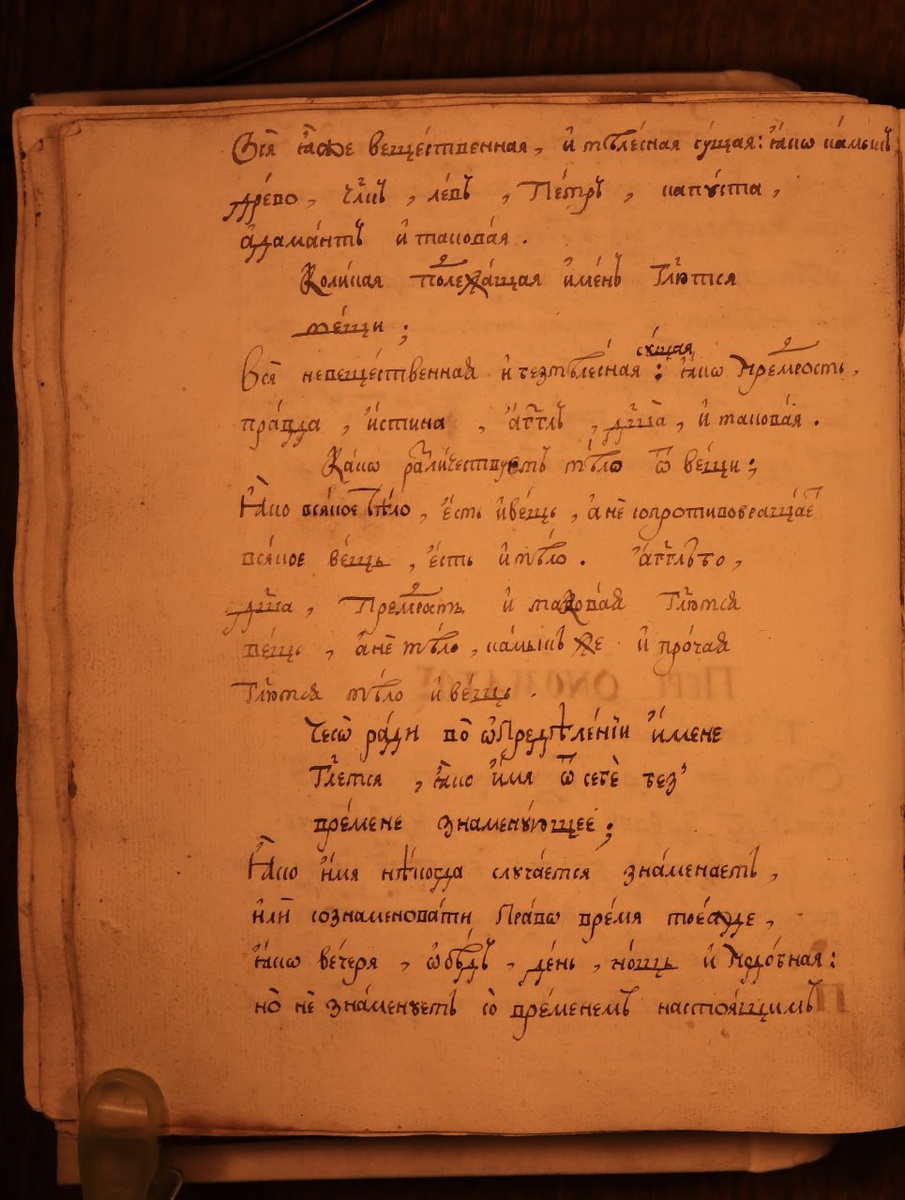 Вся̀ ꙗ҆́же веще́ственная, и҆ тѣле́сная су́щая: ꙗ҆́кѡ ка́мыкъ
дре́во, чл҃къ, ле́въ, Пе́тръ, капꙋ́ста,
а҆дама́нтъ и҆ такова́я.
Коли́кая подлежа́щая и҆ме́нъ гл҃ютсѧ
ве́щи;
Всѧ̀ невеще́ственнаѧ и҆ безтѣле́сная сꙋ́щая: ꙗ҆́кѡ мꙋ́дрость,
пра́вда, и҆́стина, а҆́гг҃лъ, дꙋша̀, и҆ такова́я.
Ка́кѡ разли́чествꙋетъ тѣ́ло ѿ ве́щи;
Ꙗ҆́кѡ всѧ́кое тѣ́ло, є҆́сть и҆ ве́щь, а҆ нѐ сопротивовраща́е
всѧ́кое ве́щь, є҆́сть и҆ тѣ́ло. а҆́гг҃лъ бо,
дш҃а, Премꙋ́дрость и҆ такова́ѧ гл҃ютсѧ
ве́щь, а҆ нѐ тѣ́ло, ка́мыкъ же и҆ про́чаѧ
гл҃ютсѧ тѣ́ло и҆ ве́щь.
Чесѡ̀ ра́ди во̀ ѡ҆предѣле́нїи и҆́мене
гл҃етсѧ, ꙗ҆́кѡ и҆́мѧ ѿ себє̀ без̾
вре́мене знаменꙋ́ющее;
Ꙗ҆́кѡ и҆́мѧ нѣ́когда слꙋча́етсѧ зна́менаетъ,
и҆лѝ сознаменова́ти пра́вѡ вре́мѧ тоє́жде,
ꙗ҆́кѡ ве́черѧ, ѡ҆бѣ́дъ, де́нь, но́щь и҆ подо́бная:
но̀ нѐ зна́менꙋетъ со̀ вре́менемъ настоѧ́щимъ